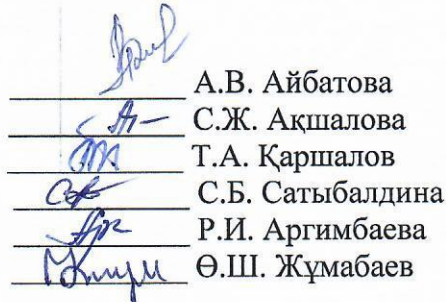 А.В. Айбатова
С.Ж. Ақшалова
Т.А. Қаршалов
С.Б. Сатыбалдина
Р.И. Аргимбаева
Ө.Ш. Жұмабаев